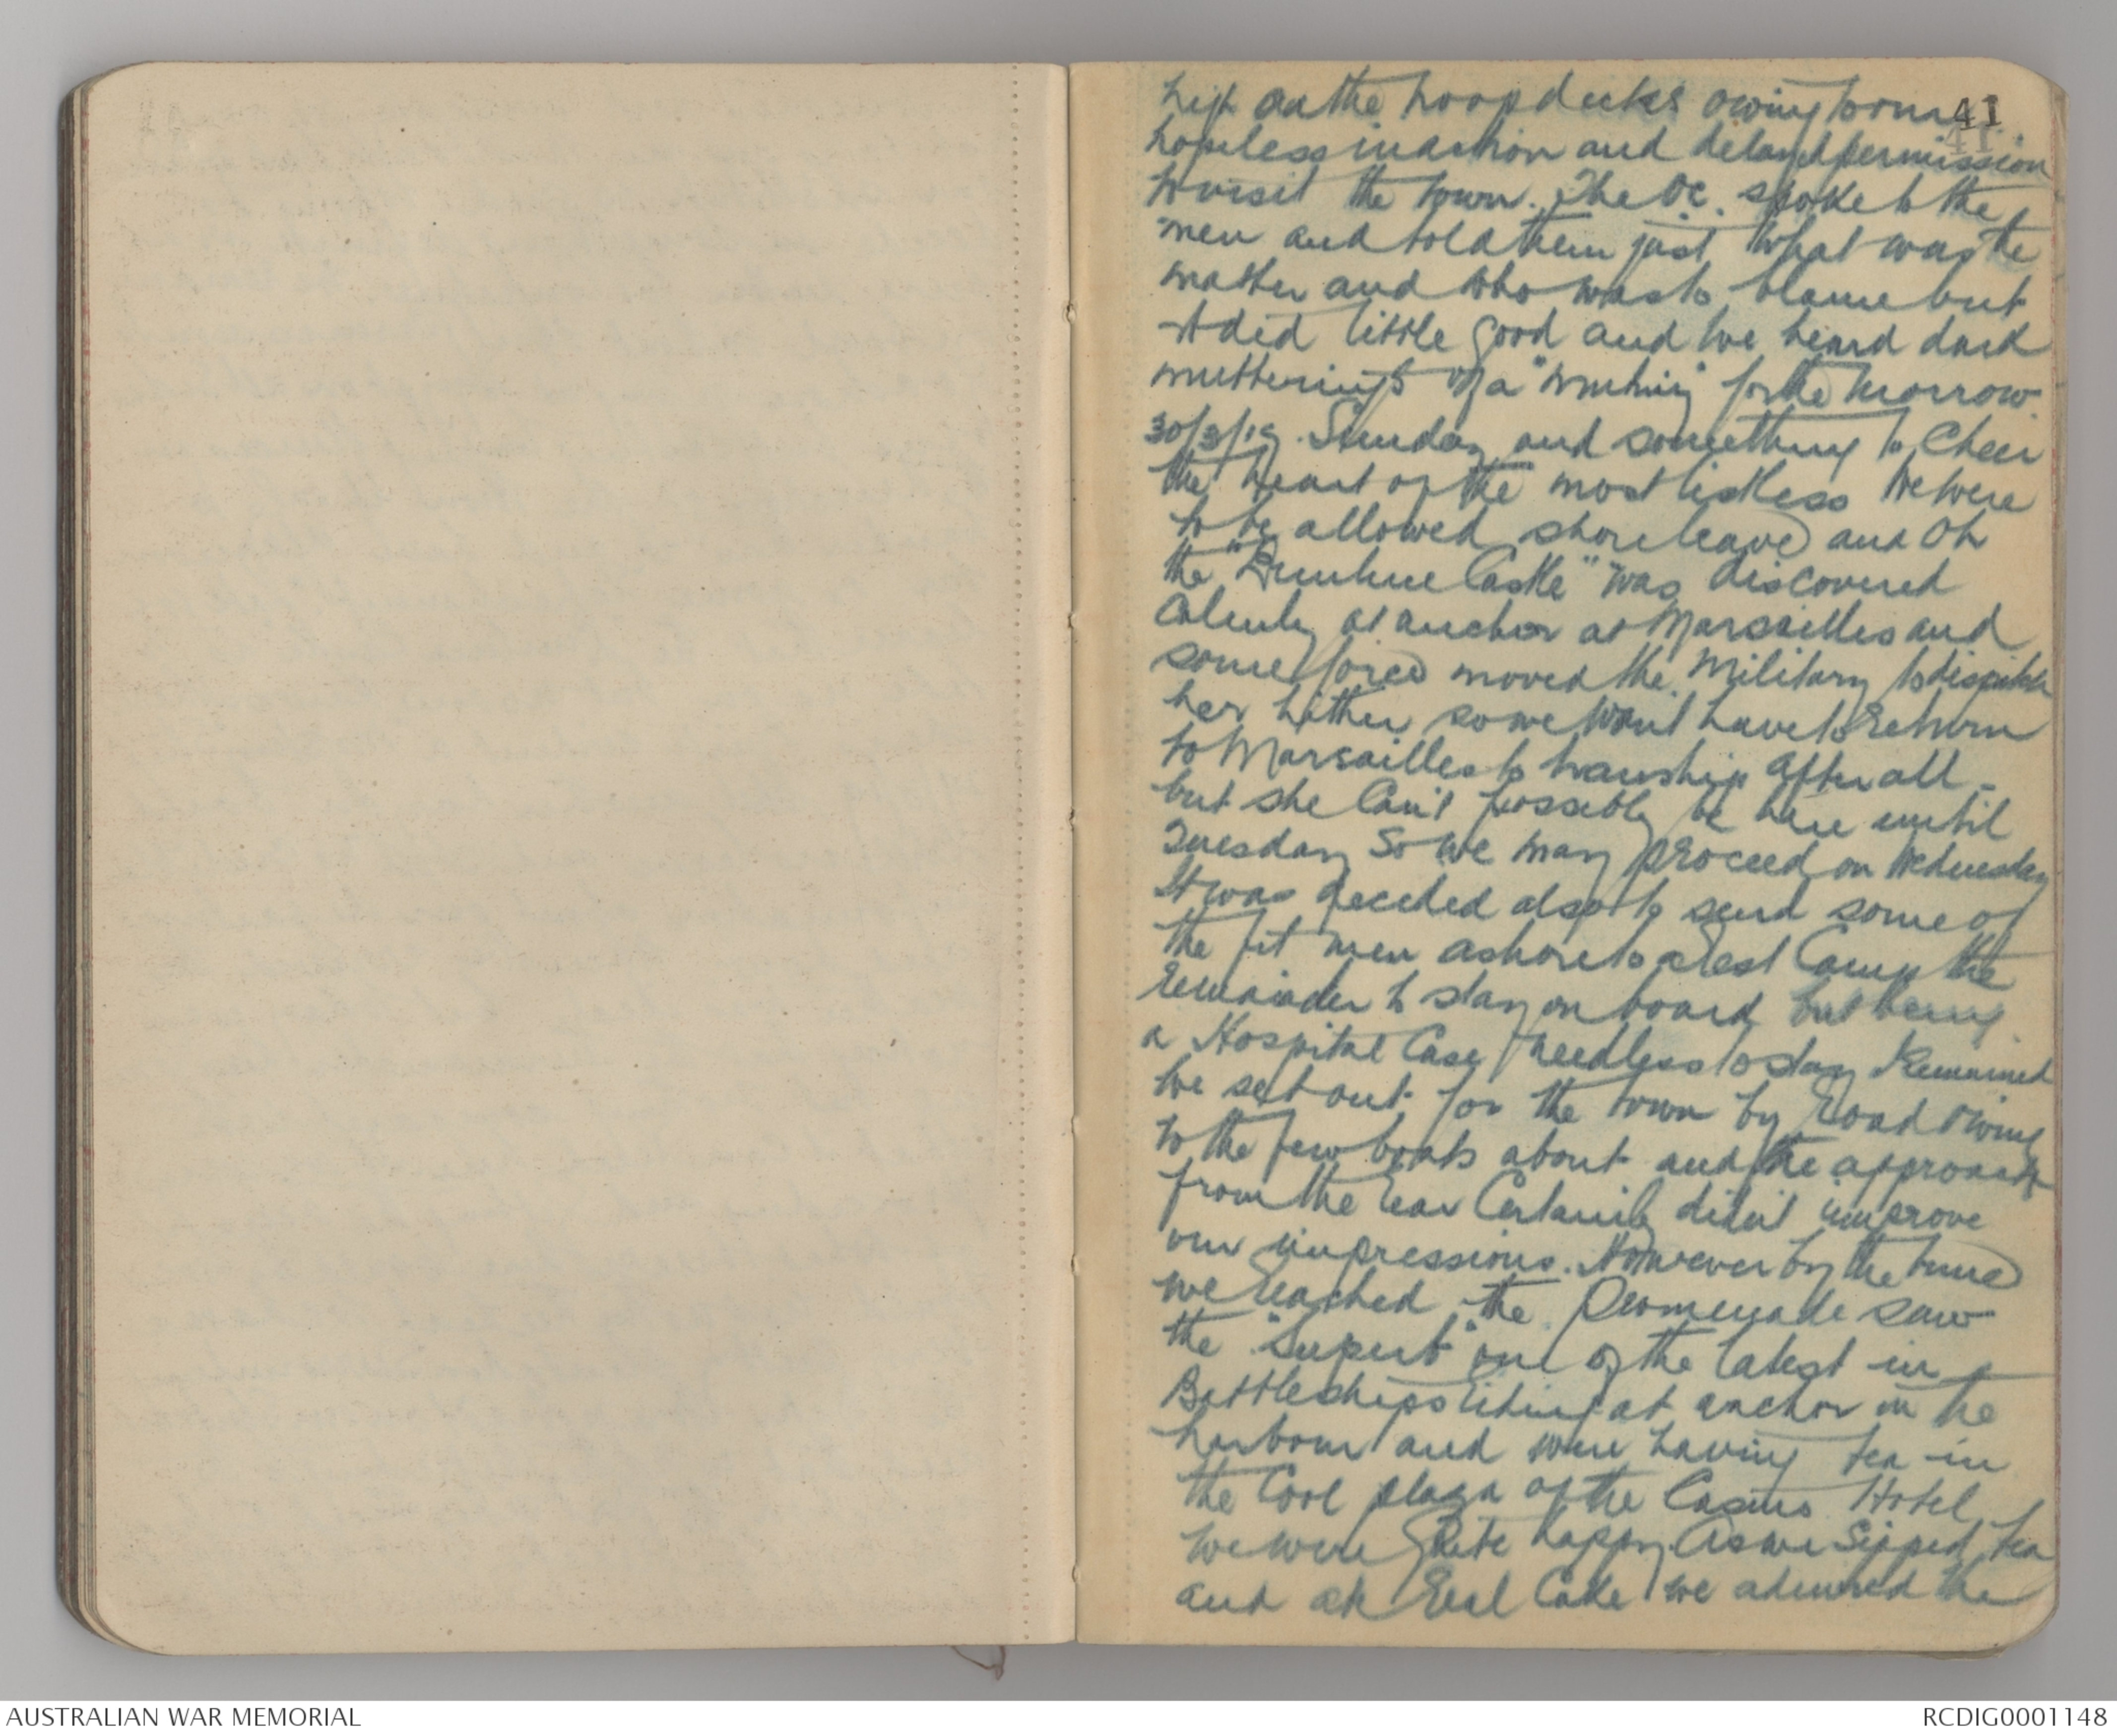 high on the troopdecks owing to our 41
hopeless inaction and delayed permission
to visit the town. The OC. spoke to the
men and told them just what was the
matter and who was to blame but
it did little good and we heard dark
mutterings of a "mutiny" for the morrow.
30/3/19. Sunday and something to Cheer
the heart of the most listless We were
to be allowed shore leave and Oh
the "Dunluce Castle" was discovered
Calmly at anchor at Marsailles and
some force moved the Military to dispatch
her hither so we wont have to return
to Marsailles to tranship after all -
but she Can't possibly be here until
Tuesday So we may proceed on Wednesday
It was decided also to send some of
the fit men ashore to a Rest Camp the
remainder to stay on board but being
a Hospital Case needless to stay Remained
We set out for the town by Road owing
to the few boats about and the approach
from the rear Certainly didn't improve
our impressions. However by the time
we reached the Promenade saw
the "Superb" one of the latest in
Battleships at anchor in the
harbour and were having tea in
the Cool plaza of the Casino Hotel
we were Quite happy. As we Sipped tea
and ate Real Cake we admired the
AUSTRALIAN WAR MEMORIAL
RCDIG0001148